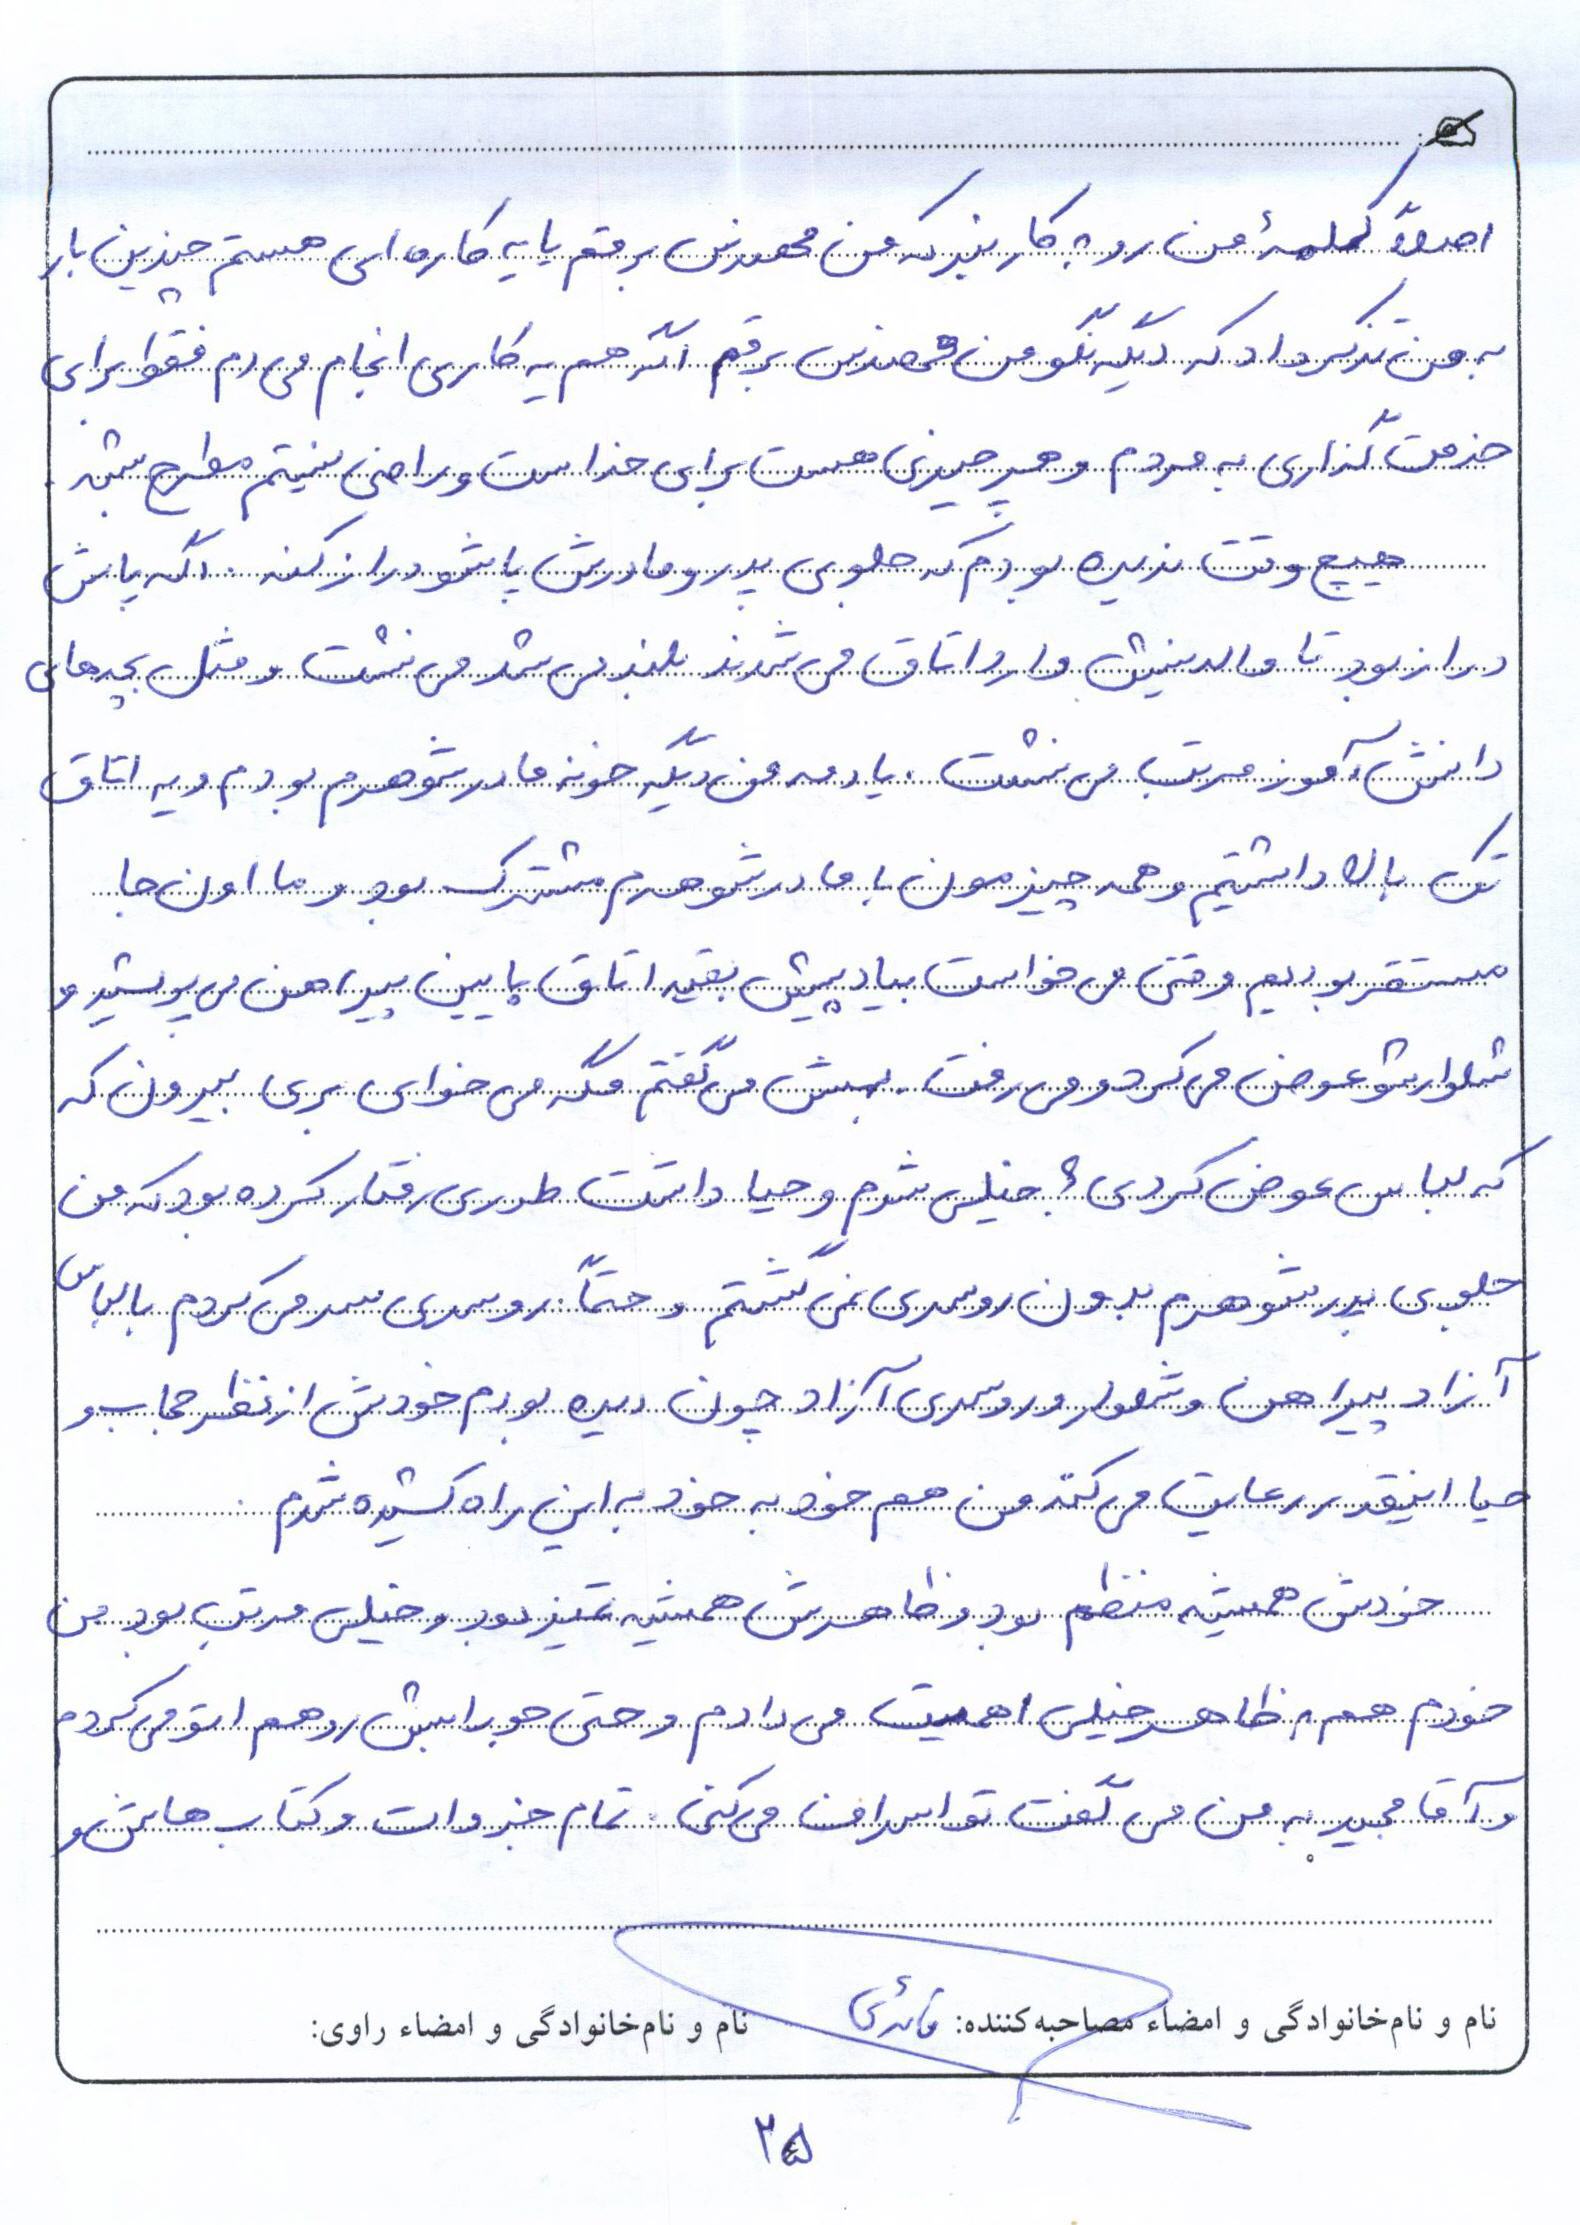 اصلاً کلمهٔ من رو به کار نبر که من مهندس برقم یا یه کاره ای هستم چندین بار
به من تذکر داد که دیگه نگو من مهندس برقم اگه هم یه کاری انجام می دم فقط برای
خدمت گذاری به مردم و هر چیزی هست برای خداست و راضی نیستم مطرح بشه .
هیچ وقت ندیده بودم که جلوی پدر و مادرش پاشو دراز کنه . اگه پاش
دراز بود تا والدینش وارد اتاق می شدند بلند می شد می نشست و مثل بچه های
دانش آموز مرتب می نشست . یادمه من دیگه خونه مادر شوهرم بودم و یه اتاق
تک بالا داشتیم و همه چیزمون با مادر شوهرم مشترک بود و ما اون جا
مستقر بودیم وقتی می خواست بیاد پیش بقیه اتاق پایین پیراهن می پوشید و
شلوارشو عوض می کرد و می رفت . بهش می گفتم مگه می خوای بری بیرون که
که لباس عوض کردی ؟ خیلی شرم و حیا داشت طوری رفتار کرده بود که من
جلوی پدر شوهرم بدون روسری نمی گشتم و حتماً روسری سر می کردم با لباس
آزاد پیراهن و شلوار و روسری آزاد چون دیده بودم خودش از نظر حجاب و
حیا اینقدر رعایت می کنه من هم خود به خود به این راه کشیده شدم .
خودش همیشه منظم بود و ظاهرش همیشه تمیز بود و خیلی مرتب بود من
خودم هم به ظاهر خیلی اهمیت می دادم و حتی جورابش رو هم اتو می کردم
و آقا مجید به من می گفت تو اسراف می کنی . تمام جزوات و کتاب هاش و
نام و نام‌خانوادگی و امضاء مصاحبه‌کننده: قائدی نام و نام‌خانوادگی و امضاء راوی:
۲۵